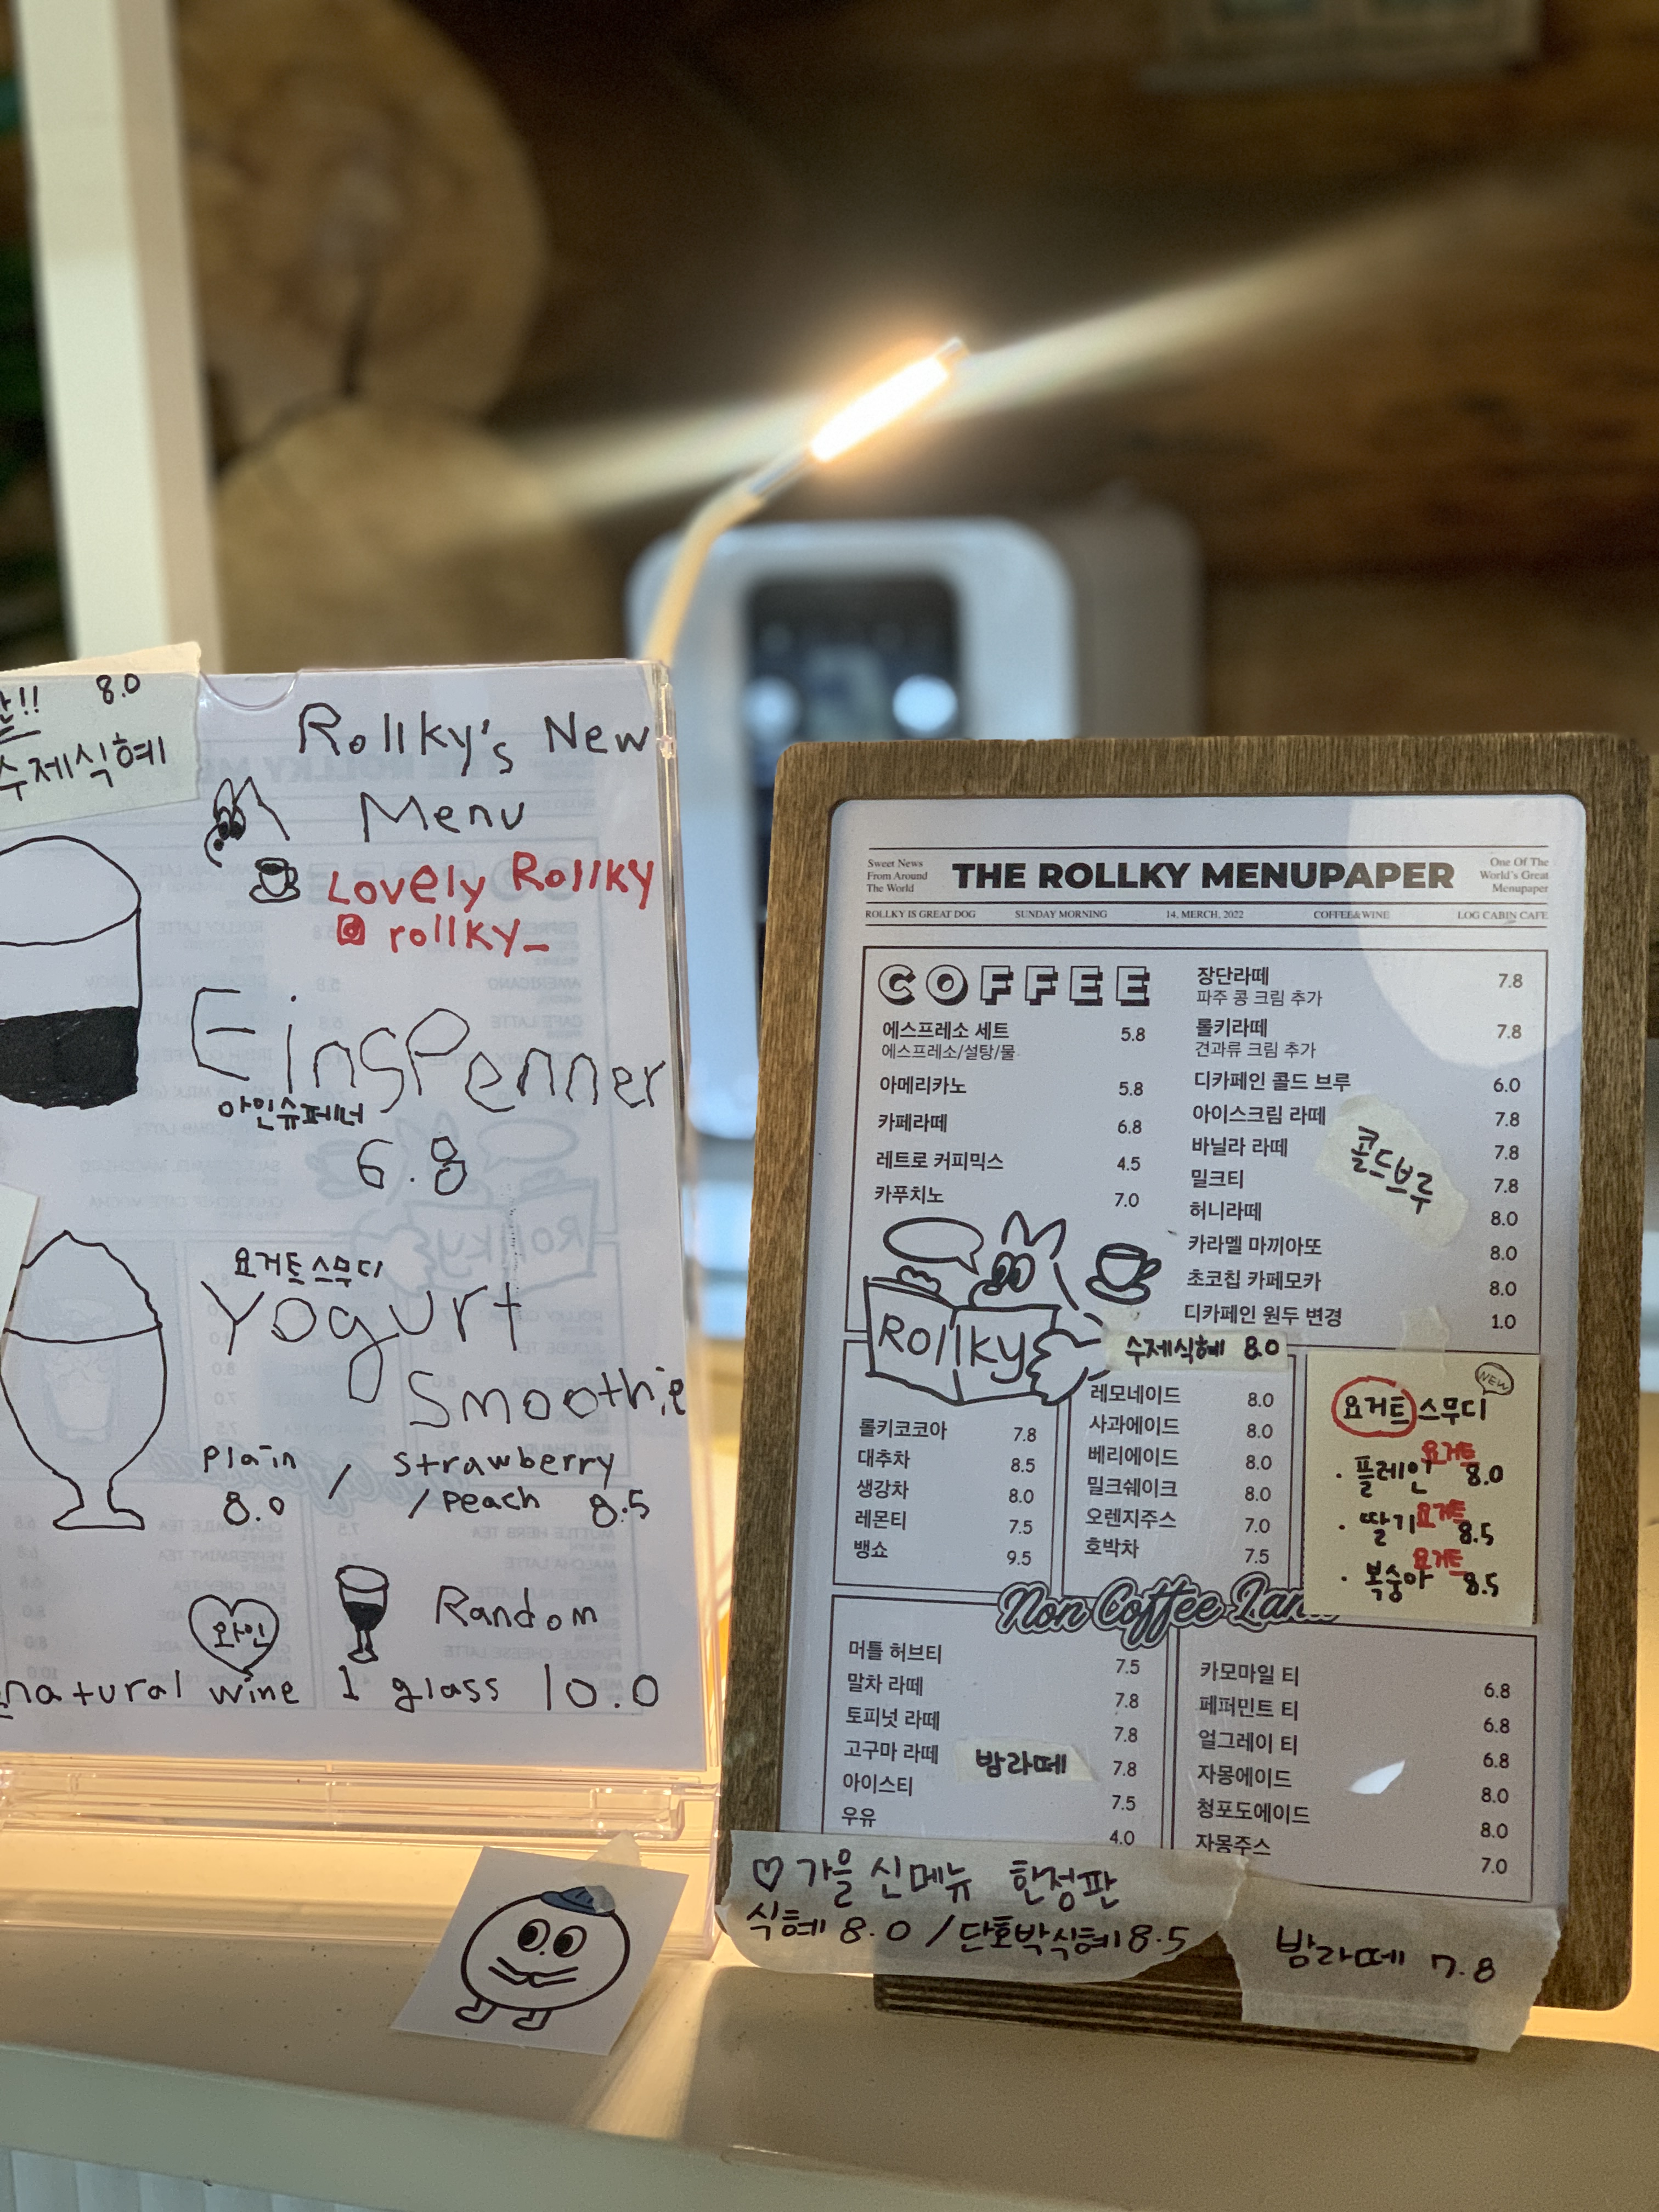 8.0
수제식혜
Rollky's New
Menu
Lovely Rollky
rollky_
Einspenner
아인슈페너
6.8
요거트 스무디
Yogurt
Smoothie
plain / strawberry
/ peach
8.0 8.5
와인 Random
natural wine 1 glass 10.0
Sweet News
From Around
The World
THE ROLLKY MENUPAPER
One Of The
World's Great
Menupaper
ROLLKY IS GREAT DOG SUNDAY MORNING 14, MERCH, 2022 COFFEE&WINE LOG CABIN CAFE
COFFEE
에스프레소 세트 5.8
에스프레소/설탕/물
아메리카노 5.8
카페라떼 6.8
레트로 커피믹스 4.5
카푸치노 7.0
장단라떼 7.8
파주 콩 크림 추가
롤키라떼 7.8
견과류 크림 추가
디카페인 콜드 브루 6.0
아이스크림 라떼 7.8
바닐라 라떼 7.8
밀크티 7.8
허니라떼 8.0
카라멜 마끼아또 8.0
초코칩 카페모카 8.0
디카페인 원두 변경 1.0
콜드브루
Rollky
수제식혜 8.0
롤키코코아 7.8
대추차 8.5
생강차 8.0
레몬티 7.5
뱅쇼 9.5
레모네이드 8.0
사과에이드 8.0
베리에이드 8.0
밀크쉐이크 8.0
오렌지주스 7.0
호박차 7.5
NEW
요거트 스무디
· 플레인 요거트 8.0
· 딸기 요거트 8.5
· 복숭아 요거트 8.5
Non Coffee Lan
머틀 허브티 7.5
말차 라떼 7.8
토피넛 라떼 7.8
고구마 라떼 7.8
밤라떼
아이스티 7.5
우유 4.0
카모마일 티 6.8
페퍼민트 티 6.8
얼그레이 티 6.8
자몽에이드 8.0
청포도에이드 8.0
자몽주스 7.0
♡ 가을 신메뉴 한정판
식혜 8.0 / 단호박식혜 8.5
밤라떼 7.8